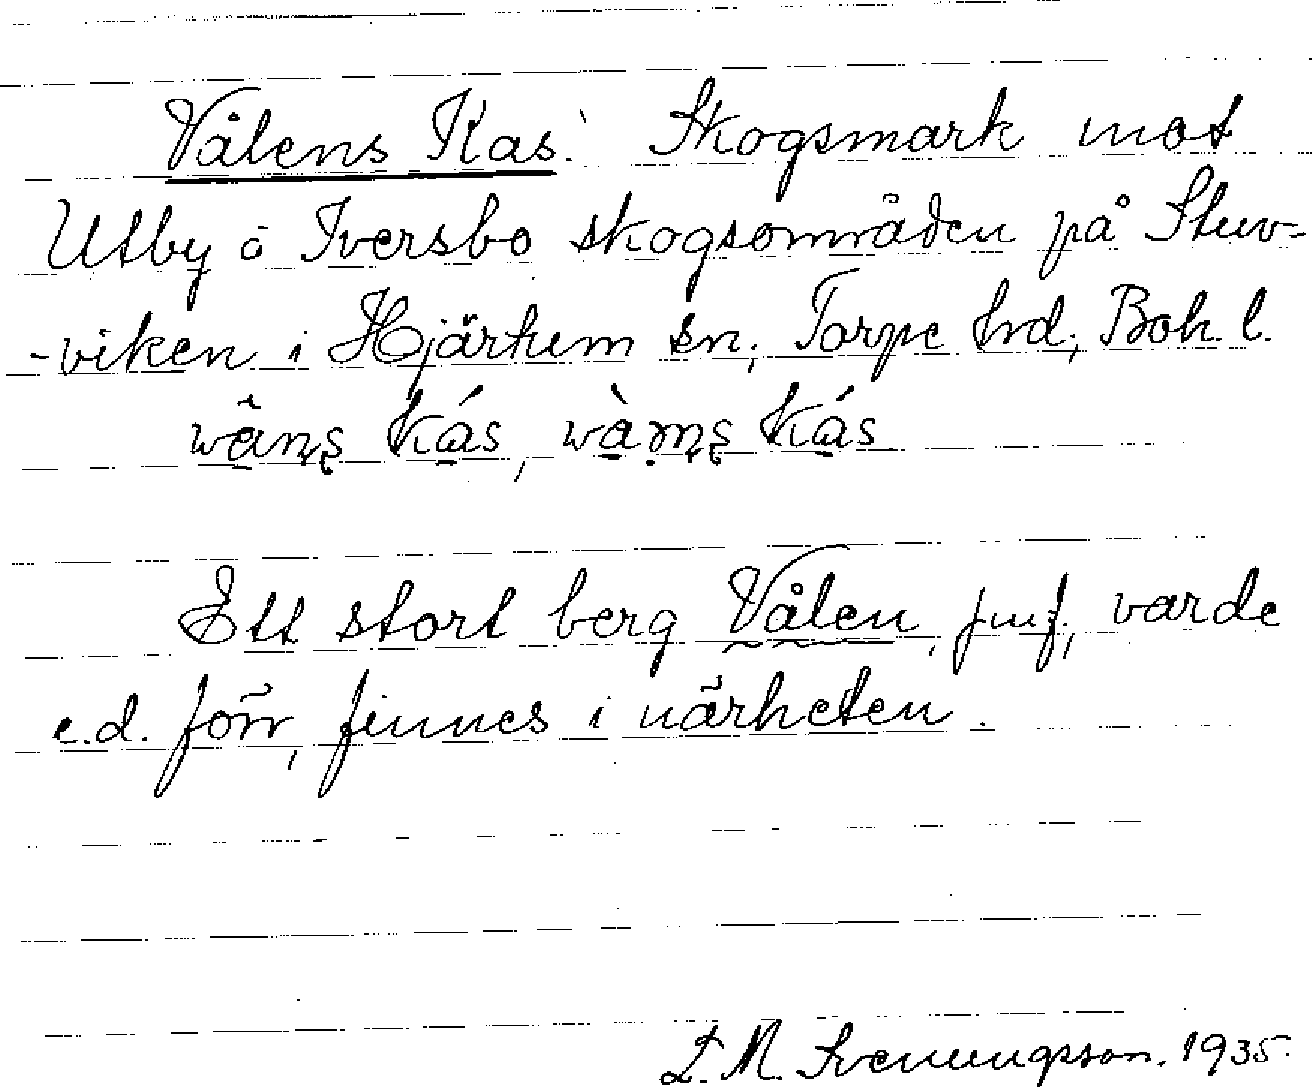 Vålens Kas. Skogsmark mot
Utby o Iversbo skogsområden på Stuv-
-viken i Hjärtum sn; Torpe hrd; Boh. l.
Ett stort berg Vålen, jmf, varde
e.d. förr, finnes i närheten.
L. M. Svenungsson. 1935.